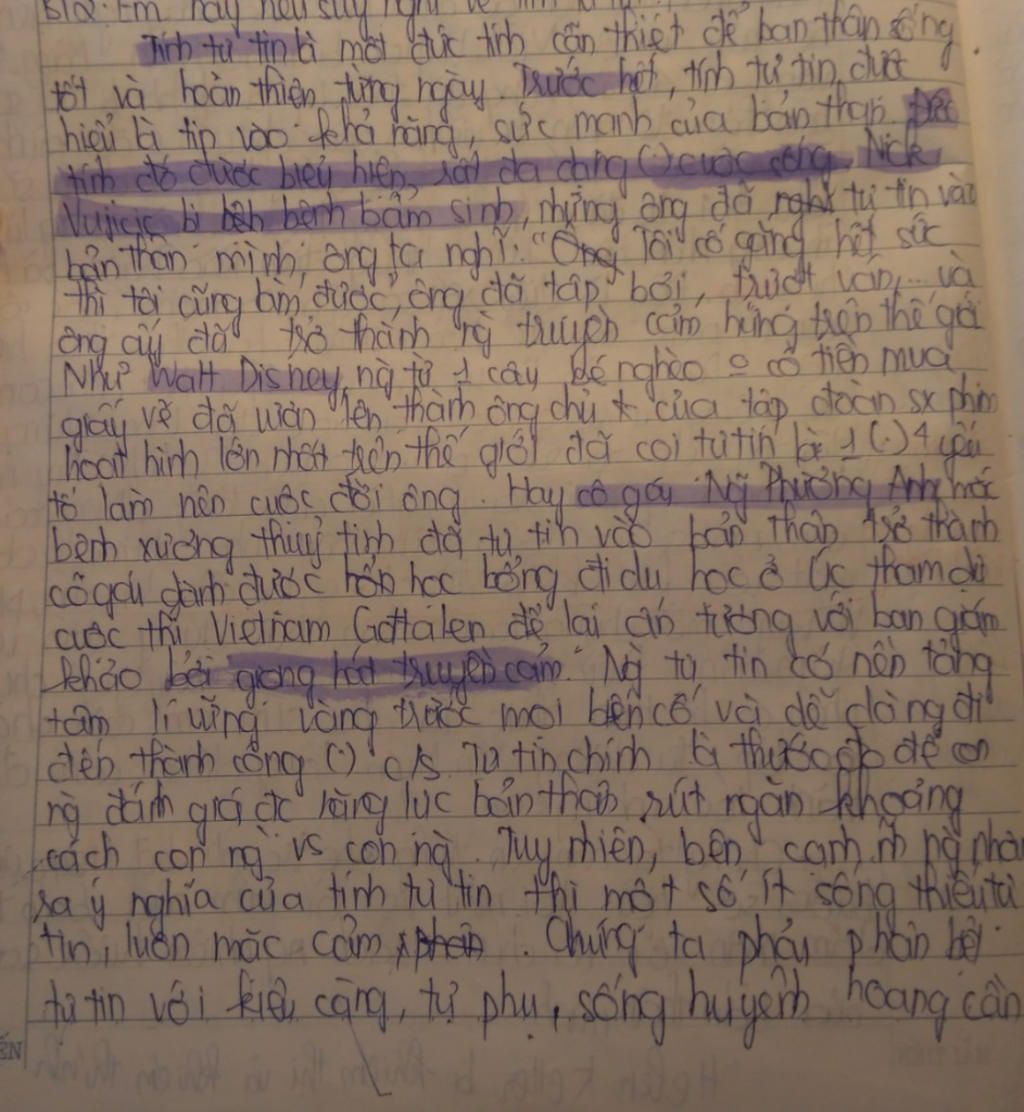 B12. Em hãy nêu suy nghĩ về tính tự tin
Tính tự tin là một đức tính cần thiết để bản thân sống
tốt và hoàn thiện từng ngày. Trước hết, tính tự tin được
hiểu là tin vào khả năng, sức mạnh của bản thân. Đức
tính đó được biểu hiện rất đa dạng (.) cuộc sống. Nick
Vujicic bị bệnh bẩm sinh, nhưng ông đã nghĩ tự tin vào
bản thân mình, ông ta nghĩ: "Ông Tôi cố gắng hết sức
thì tôi cũng làm được, ông đã tập bơi, trượt ván,... và
ông ấy đã trở thành ng truyền cảm hứng trên thế giới
Như Walt Disney, ng từ 1 cậu bé nghèo o có tiền mua
giấy vẽ đã vươn lên thành ông chủ của tập đoàn sx phim
hoạt hình lớn nhất trên thế giới đã coi tự tin là 1 (.) 4 yếu
tố làm nên cuộc đời ông. Hay cô gái Ng Phương Anh mắc
bệnh xương thuỷ tinh đã tự tin vào bản thân trở thành
cô gái dành được học bổng đi du học ở Úc tham dự
cuộc thi Vietnam Gottalen để lại ấn tượng với ban giám
khảo bởi giọng hát truyền cảm. Ng tự tin có nền tảng
tâm lí vững vàng trước mọi biến cố và dễ dàng đi
đến thành công (.) c/s. Tự tin chính là thước đo để con
ng đánh giá đc năng lực bản thân, rút ngắn khoảng
cách con ng vs con ng. Tuy nhiên, bên cạnh n ng nhận
ra ý nghĩa của tính tự tin thì một số ít sống thiếu tự
tin, luôn mặc cảm. Chúng ta phải phân biệt
tự tin với kiêu căng, tự phụ, sống huyênh hoang cần